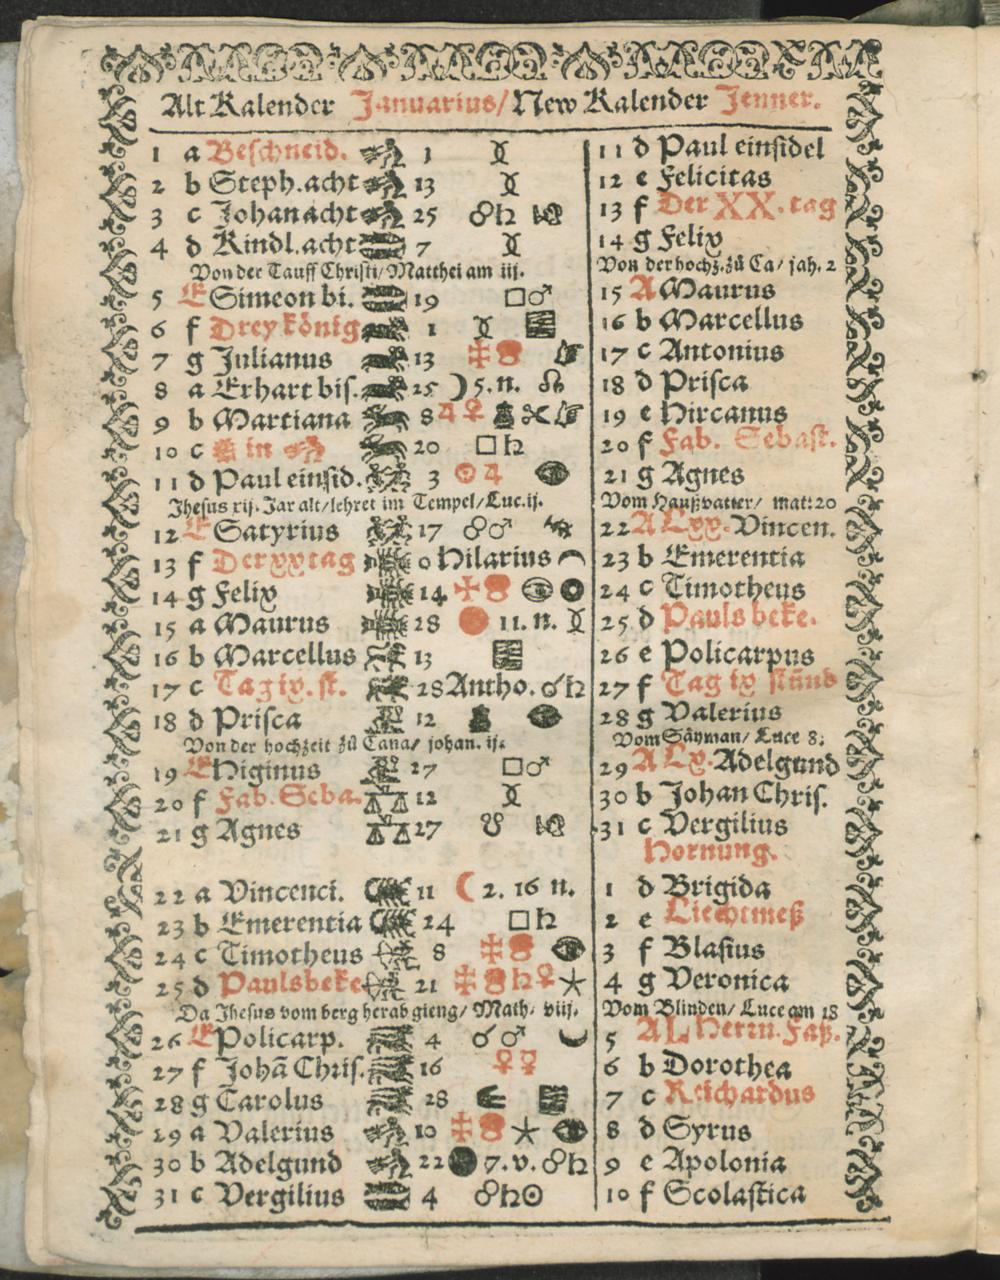 Alt Kalender Januarius/ New Kalender Jenner.
1 a Beschneid. 1
2 b Steph. acht 13
3 c Johan acht 25 ☍♄
4 d Kindl. acht 7
Von der Tauff Christi/ Matthei am iij.
5 E Simeon bi. 19 □♂
6 f Drey König 1
7 g Julianus 13
8 a Erhart bis. 25 ☽ 5. n. ☊
9 b Martiana 8 ♃♀
10 c in 20 □♄
11 d Paul einsid. 3 ☉♃
Jhesus xij. Jar alt/ lehret im Tempel/ Luc. ij.
12 E Satyrius 17 ☍♂
13 f Der xx tag 0 Hilarius
14 g Felix 14
15 a Maurus 28 11. n.
16 b Marcellus 13
17 c Tag ix. st. 28 Antho. ☌♄
18 d Prisca 12
Von der hochzeit zů Cana/ johan. ij.
19 E Higinus 27 □♂
20 f Fab. Seba. 12
21 g Agnes 27 ☋
22 a Vincenci. 11 ☾ 2. 16 n.
23 b Emerentia 24 □♄
24 c Timotheus 8
25 d Pauls beke. 21 ♄♀
Da Jhesus vom berg herab gieng/ Math. viij.
26 E Policarp. 4 ☌♂
27 f Johã Chris. 16 ♀☿
28 g Carolus 28
29 a Valerius 10
30 b Adelgund 22 7. v. ☍♄
31 c Vergilius 4 ☍♄☉
11 d Paul einsidel
12 e Felicitas
13 f Der XX. tag
14 g Felix
Von der hochz. zů Ca/ joh. 2
15 A Maurus
16 b Marcellus
17 c Antonius
18 d Prisca
19 e Hircanus
20 f Fab. Sebast.
21 g Agnes
Vom Haußvatter/ mat: 20
22 A Lxx. Vincen.
23 b Emerentia
24 c Timotheus
25 d Pauls beke.
26 e Policarpus
27 f Tag ix stünd
28 g Valerius
Vom Säyman/ Luce 8.
29 A Lx. Adelgund
30 b Johan Chris.
31 c Vergilius
Hornung.
1 d Brigida
2 e Liechtmeß
3 f Blasius
4 g Veronica
Vom Blinden/ Luce am 18
5 A L Herrn. Faß.
6 b Dorothea
7 c Reichardus
8 d Syrus
9 e Apolonia
10 f Scolastica